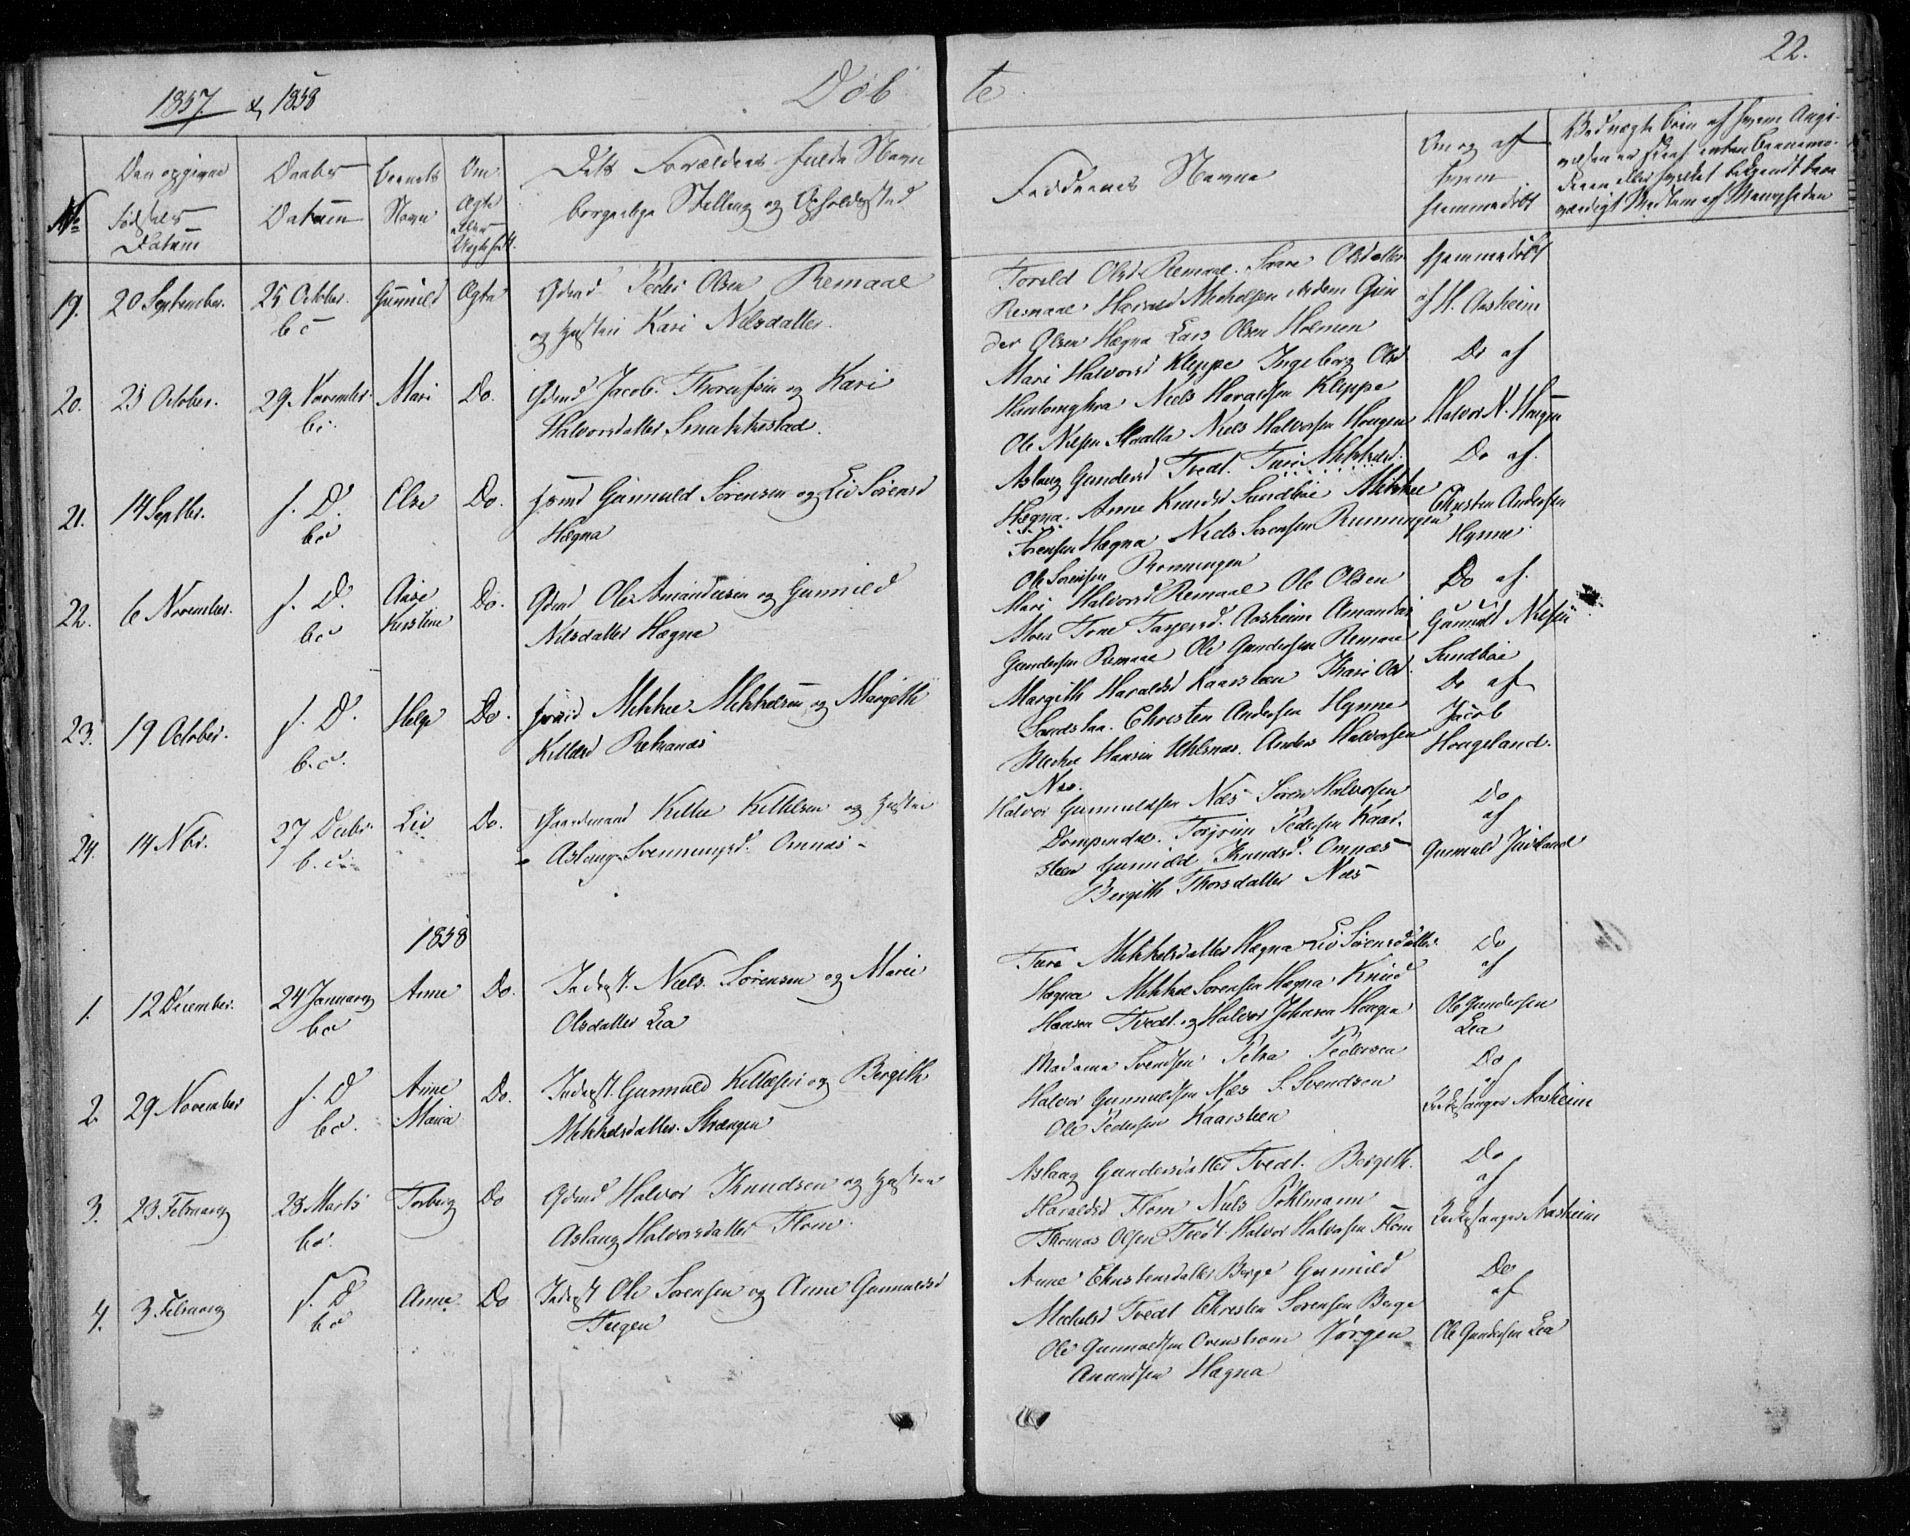 22.
1857 & 1858
Døbte
No
Den opgivne Fødsels Datum
Daabs Datum
Barnets Navn
Om Ægte eller Uægtefødt.
Dets Forældres fulde Navn borgerlige Stilling og Opholdssted
Faddernes Navne
Om og af hvem hjemmedøbt
19. 20 September. 25 October. Gunnild Ægte Gdmd Peder Olsen Remaal
bo og Hustru Kari Nilsdatter.
Torild Olsd. Remaal. Olsdatter
Remaal Harald Mechelsen ibidem Gun
der Olsen Hægna Lars Olsen Holmen
Hjemmedøbt
af H. Aasheim
20. 23 October. 29 November Mari Do. Gdmd Jacob Thorensen og Kari
bo. Halvorsdatter Smukkestad.
Mari Halvorsd Kleppe Ingeborg Olsd
Niels Haraldsen Kleppe
Ole Nilsen Niels Halvorsen Hougen
Do af
Halvor N. Hougen
21. 14 Septbr. s. D. Else Do. Gunnuld Sørensen og Liv Sørensd
bo Hægna
Aslaug Gundersd Tvedt. Turi Mikkelsd.
Hægna. Anne Knudsd Sundbøe Mikkel
Sørensen Hægna Niels Sørensen Runningen
Ole Sørensen Rønningen
Do af
Christen Andersen
Hynne
22. 6 November. s. D. Aase Do. Gdmd Ole Amundsen og Gunnild
bo Kirstine Nilsdatter Hægna
Mari Halvorsd Remaal Ole Olsen
Moen Tone Targersd. Aasheim Amund
Gundersen Remaal Ole Gundersen Remaal
Do af.
Gunnuld Nilsen
Sundbøe
23. 19 October. s. D. Helge Do. Mikkel Mikkelsen og Margith
b.o. Killelsd
Margith Haraldsd Kaarsteen Kari Olsd.
Christen Andersen Hynne
Hansen Anders Halvorsen
Næs.
Do af
Jacob
Hougeland.
24. 14 Nbr. 27 Decbr. Liv Do. Gaardmand Killel Killelsen og Hustru
b.o. Aslaug Svenningsd. Omnæs
Halvor Gunnuldsen Næs Søren Halvorsen
Dompendal. Torjrim Pedersen Kaar-
steen Gunnild Knudsd. Omnæs
Bergith Thorsdatter Næs
Do
af
Gunnuld Juveland
1858
1. 12 December. 24 Januarij Anne Do. Inderst. Niels Sørensen og Marie
bo Olsdatter Lia
Ture Mikkelsdatter Hægna Liv Sørensdatter
Hægna Mikkel Sørensen Hægna Knud
Hansen Tvedt og Halvor Johnsen Hougen
Do
af
Ole Gundersen
Lia
2. 29 November s. D Anne Do. Inderst. Gunnuld Killelsen og Bergith
bo. Maria Mikkelsdatter Strængen
Madame Svendsen Petra Pedersen
Halvor Gunnuldsen Næs S. Svendsen
Ole Pedersen Kaarsteen
Do
af
Kirkesanger Aasheim
3. 23 Februarij 28 Marts Torberg Do Gdmd Halvor Knudsen og Hustru
bo. Aslaug Halvorsdatter Flom.
Aslaug Gundersdatter Tvedt. Bergith
Haraldsd Flom Niels Pohlmann
Thomas Olsen Tvedt Halvor Halvorsen Flom
Do
af
Kirkesanger Aasheim
4. 3 Februarij s. D Anne Do Inderst Ole Sørensen og Anne Gunnuldsd
bo Teigen
Anne Christensdatter Berge Gunnild
Mechelsd Tvedt Christen Sørensen Berge
Ole Gunnuldsen Ovenstrøm Jørgen
Amundsen Hægna
Do
af
Ole Gundersen Lia